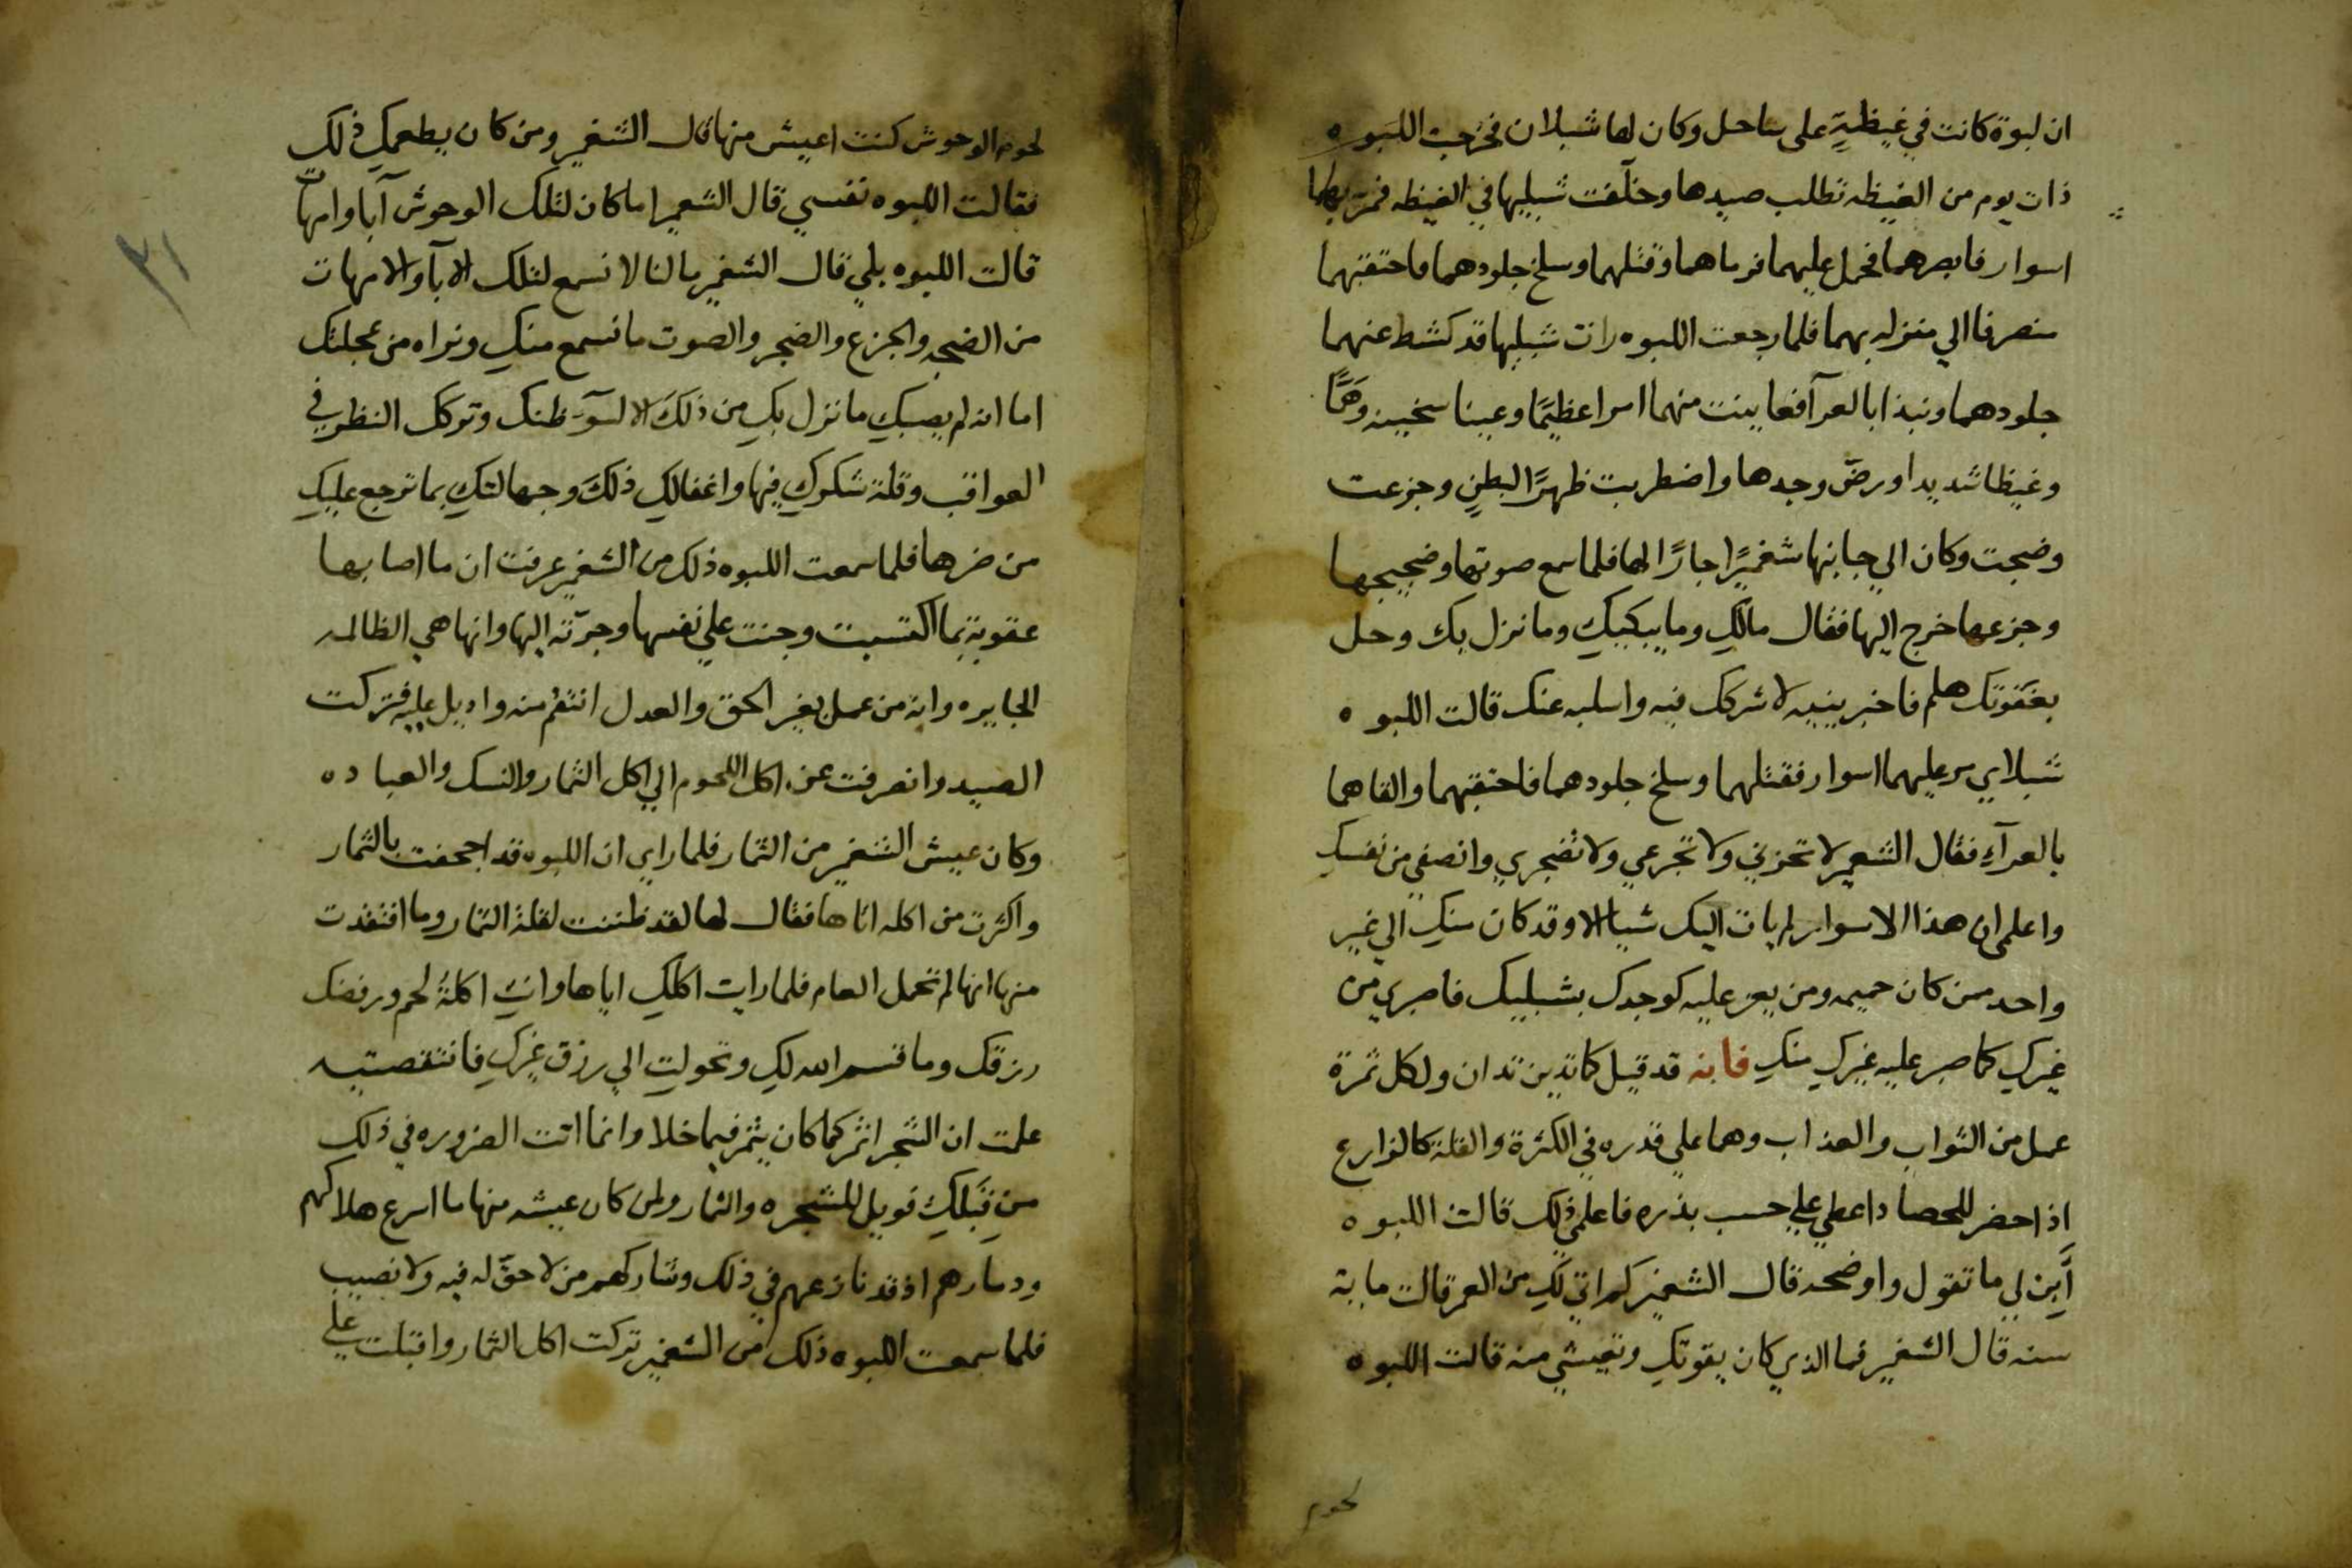 ان لبوة كانت في غيظةٍ على ساحل وكان لها شبلان فخرجت اللبوه
ذات يوم من الغيظه تطلب صيدها وخلّفت شبليها في الغيظه فمر بهما
اسوار فابصرهما فحمل عليهما فرماهما وقتلهما وسلخ جلودهما فاحتقبهما
منصرفا الي منزله بهما فلما رجعت اللبوه رات شبليها قد كشط عنهما
جلودهما ونبذا بالعرآ فعاينت منهما امرا عظيمًا وعينا سخينه وهمًّا
وغيظا شديدا ورضّ وجدها واضطربت ظهرًا لبطنٍ وجزعت
وضجت وكان الي جانبها شغبرًا جارًا لها فلما سمع صوتها وضجيجها
وجزعها خرج اليها فقال مالكِ وما يبكيكِ وما نزل بك وحل
بعَقوتك هلم فاخبرينيه لاشركك فيه واسليه عنك قالت اللبوه
شبلاي مر عليهما اسوار فقتلهما وسلخ جلودهما فاحتقبهما والقاهما
بالعرآءِ فقال الشعبر لا تحزني ولا تجزعي ولا تضجري وانصفي من نفسكِ
واعلمي ان هذا الاسوار لم يات اليك شيا الا وقد كان منكِ الي غير
واحد ممن كان حميمه ومن يعز عليه كوجدك بشبليك فاصبري من
غيركِ كما صبر عليه غيركِ منكِ فانه قد قيل كما تدين تدان ولكل ثمرة
عمل من الثواب والعذاب وهما علي قدره في الكثرة والقلة كالزارع
اذا حضر للحصاد اعطي علي حسب بذره فاعلمي ذلك قالت اللبوه
أَبِن لي ما تقول واوضحه قال الشغبر كم اتي لكِ من العمر قالت مايه
سنه قال الشغبر فما الذي كان يقوتكِ وتعيشي منه قالت اللبوه
لحوم
٣١
لحوم الوحوش كنت اعيش منها قال الشغبر ومن كان يطعمكِ ذلك
فقالت اللبوه نفسي قال الشعبر اما كان لتلك الوحوش آبا وامهات
قالت اللبوه بلي قال الشغبر مالنا لا نسمع لتلك الابآ والامهات
من الضجه والجزع والضجر والصوت ما نسمع منكِ ونراه من عجلتك
اما انه لم يصبكِ ما نزل بكِ من ذلكَ الا لسوٓء ظنك وتركك النظر في
العواقب وقلة شكركِ فيها واغفالكِ ذلكَ وجهالتكِ بما ترجع عليكِ
من ضرها فلما سمعت اللبوه ذلك من الشغبر عرفت ان ما اصابها
عقوبة بما اكتسبت وجنت علي نفسها وجرّته اليها وانها هي الظالمه
الجايره وانه من عمل بغير الحق والعدل انتقُم منه واديل عليه فتركت
الصيد وانصرفت عن اكل اللحوم الي اكل الثمار والنسك والعباده
وكان عيش الشغبر من الثمار فلما راي ان اللبوه قد اجحفت بالثمار
واكثرت من اكله اتاها فقال لها لقد ظننت لقلة الثمار وما افتقدت
منها انها لم تحمل العام فلما رايت اكلكِ اياها وانتِ اكلةُ لحم ورفضك
رزقك وما قسم الله لكِ وتحولتِ الي رزق غيركِ فانتقصتيه
علمت ان الشجر اثمر كما كان يثمر فيما خلا وانما اتت الضروره في ذلك
من قبَلكِ فويل للشجره والثمار ولمن كان عيشه منها ما اسرع هلاكهم
ودمارهم اذ قد نازعهم في ذلك وشاركهم من لا حقّ له فيه ولا نصيب
فلما سمعت اللبوه ذلك من الشغبر تركت اكل الثمار واقبلت علي